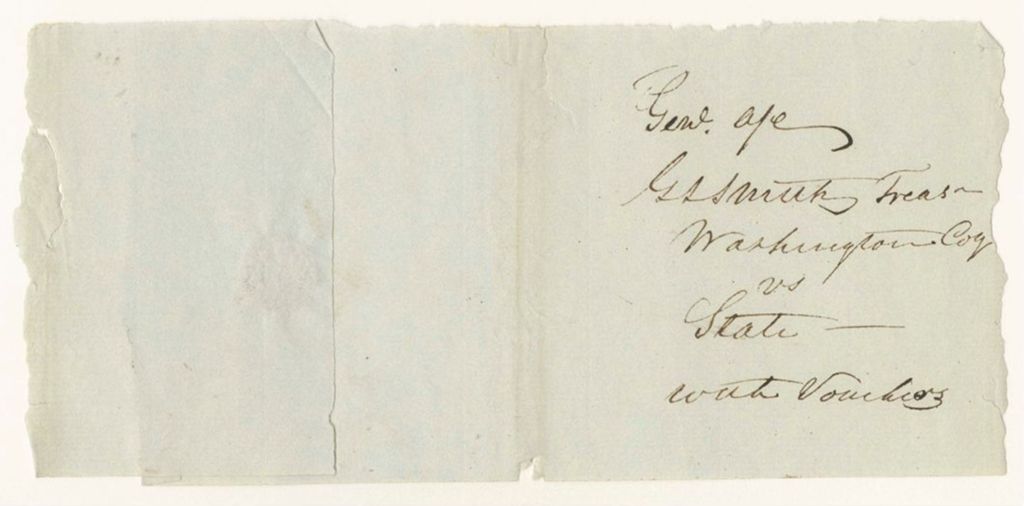 Genl. a/c
G S Smith Treas
Washington Coy
vs
State —
with Vouchers